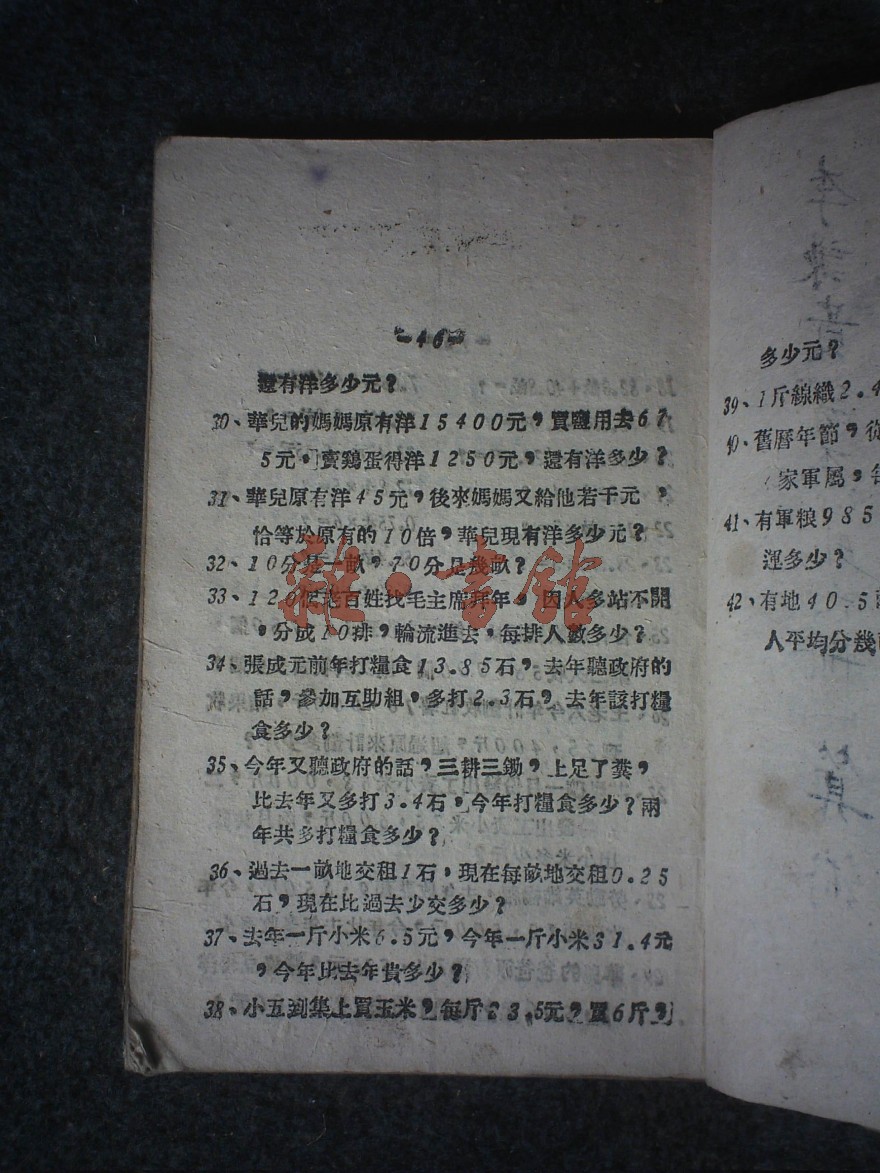 -46-
還有洋多少元？
30、華兒的媽媽原有洋15400元，買鹽用去67
5元，賣鷄蛋得洋1250元，還有洋多少？
31、華兒原有洋45元，後來媽媽又給他若干元，
恰等於原有的10倍，華兒現有洋多少元？
32、10分是一畝，70分是幾畝？
33、120個老百姓找毛主席拜年，因人多站不開
，分成10排，輪流進去，每排人數多少？
34、張成元前年打糧食13.85石，去年聽政府的
話，參加互助組，多打2.3石，去年該打糧
食多少？
35、今年又聽政府的話，三耕三鋤，上足了糞，
比去年又多打3.4石，今年打糧食多少？兩
年共多打糧食多少？
36、過去一畝地交租1石，現在每畝地交租0.25
石，現在比過去少交多少？
37、去年一斤小米6.5元，今年一斤小米31.4元
，今年比去年貴多少？
38、小五到集上買玉米，每斤23.5元，買6斤，
雜·書館
多少元？
39、1斤線織2.4
40、舊曆年節，從
家軍屬，每
41、有軍粮985
運多少？
42、有地40.5
人平均分幾